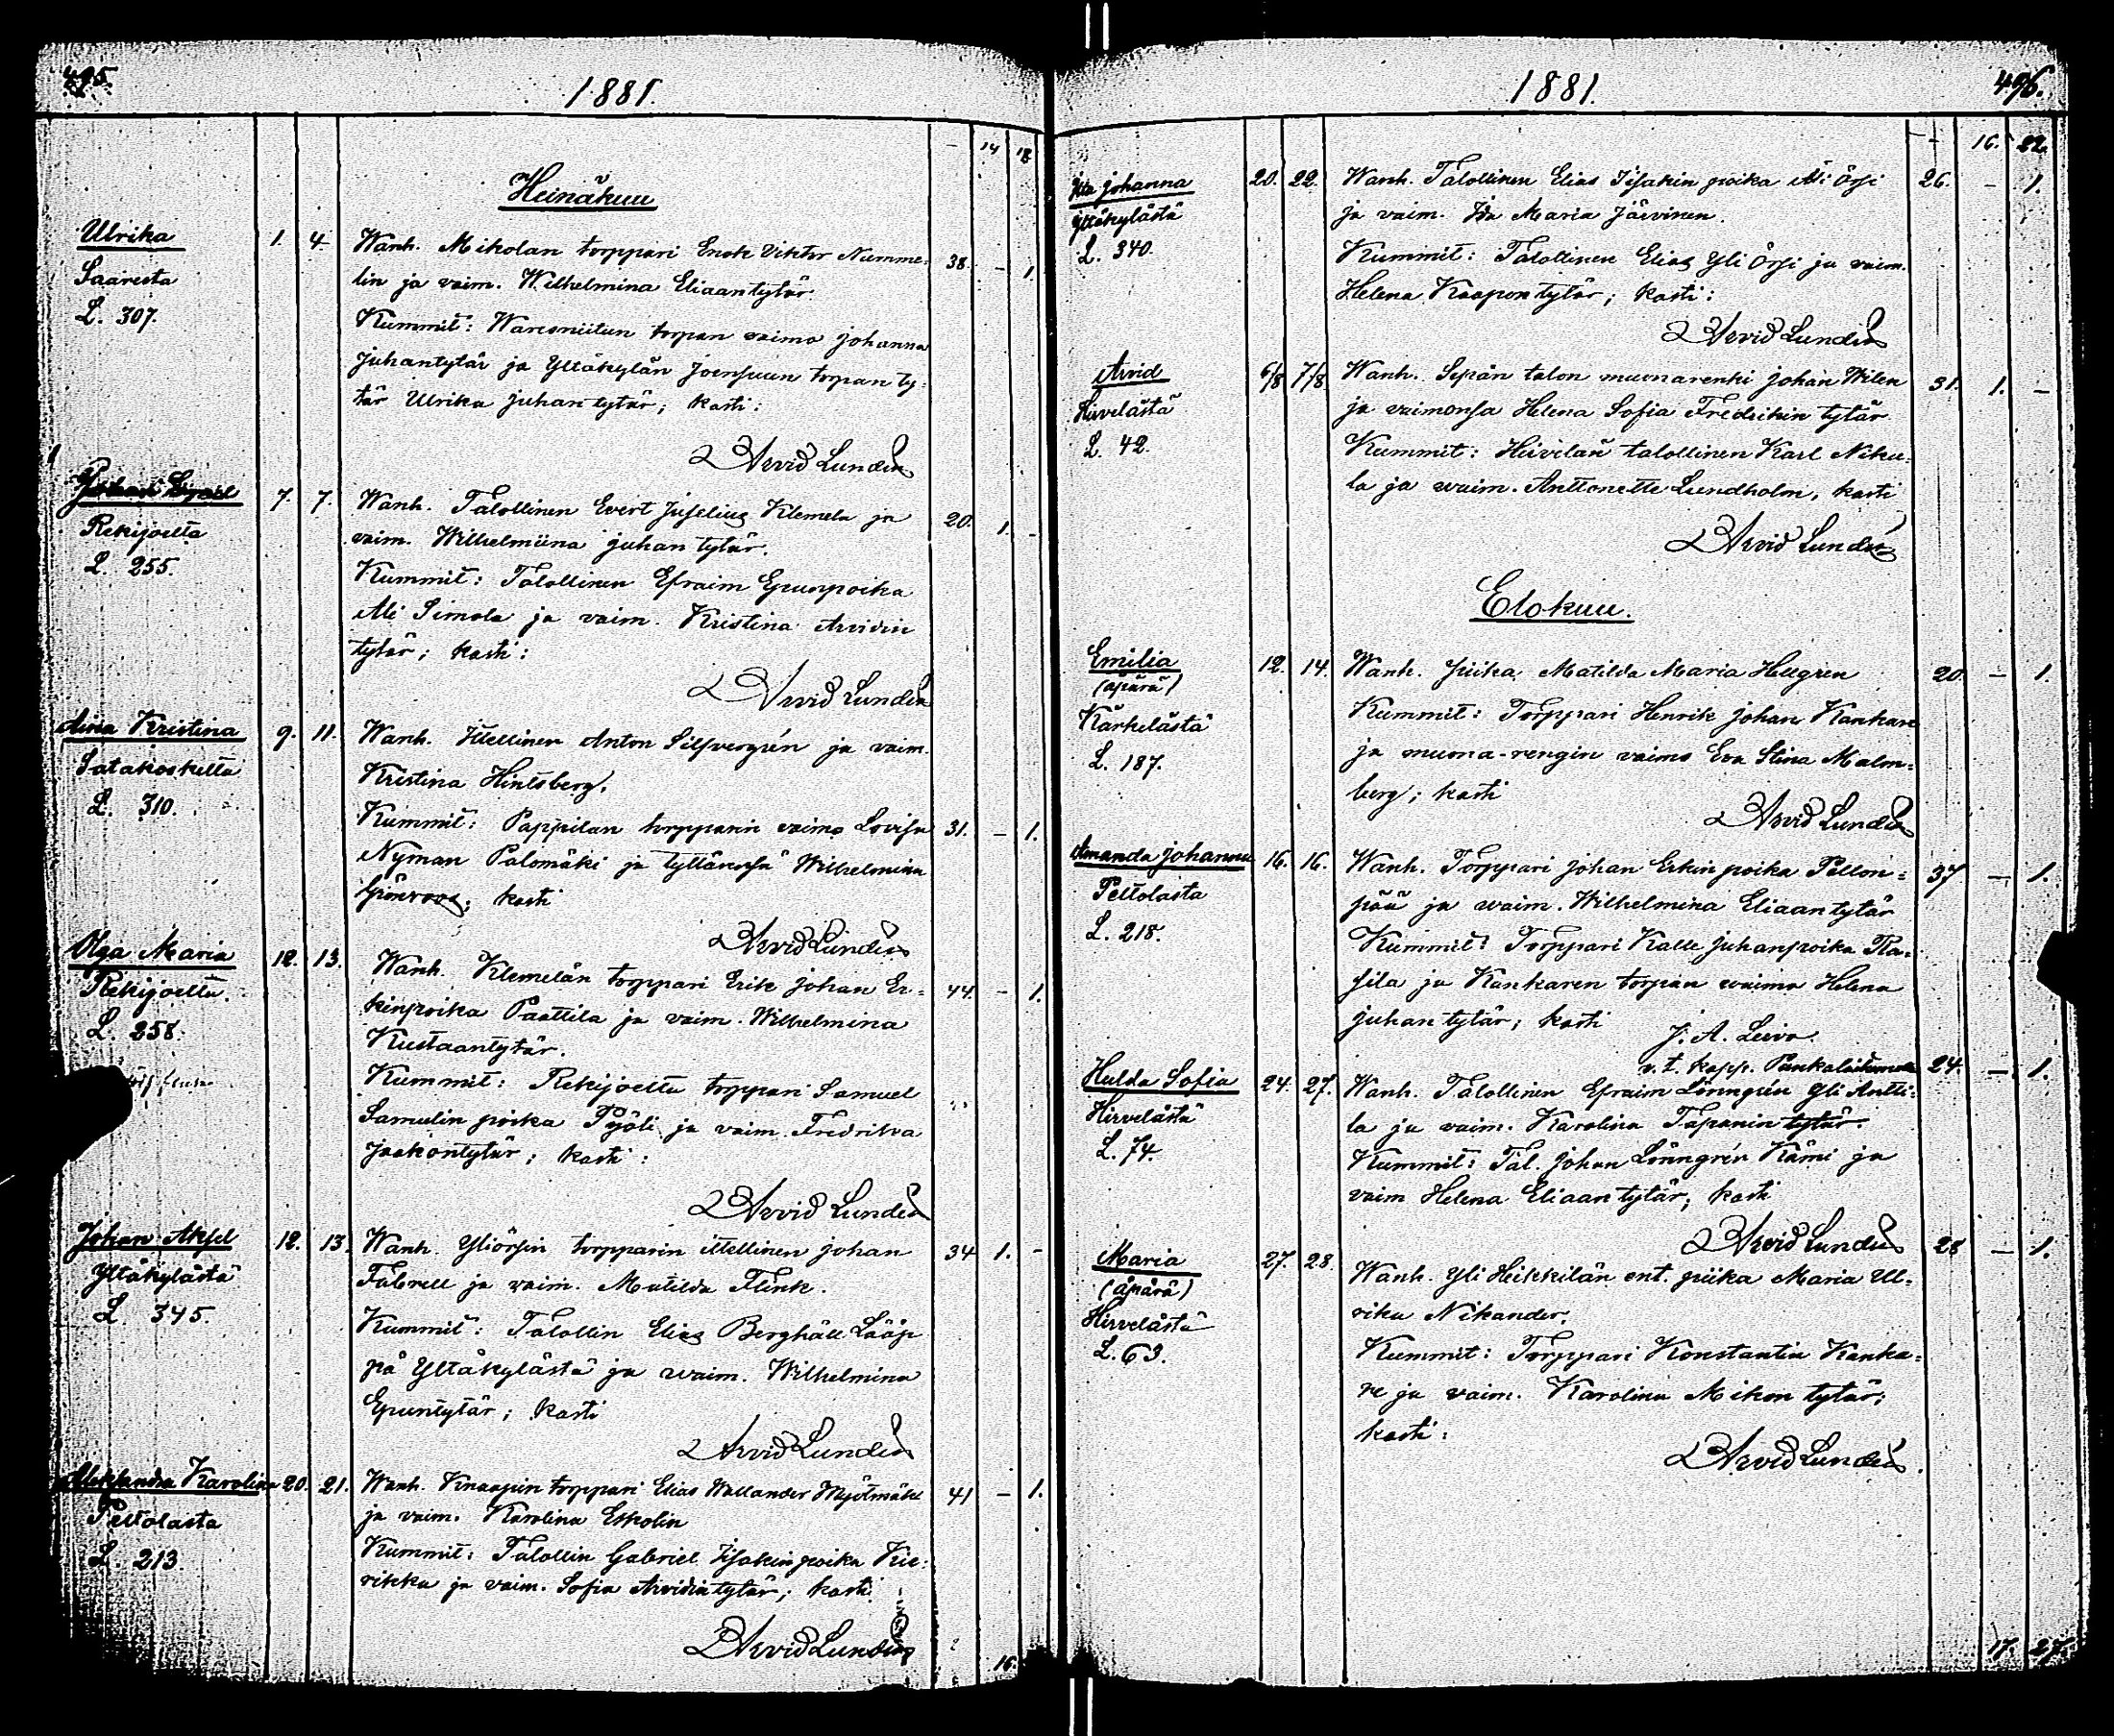 495.
1881.
- 14 18
Heinäkuu
Ulrika 1. 4. Wanh. Mikolan torppari Enok Viktor Numme= 38. - 1.
Saaresta lin ja vaim. Wilhelmina Eliaantytär
L. 307. Kummit: torpan vaimo Johanna
Juhantytär ja Yltäkylän Joensuun torpan ty=
tär Ulrika Juhantytär; kasti:
Arvid Lundén
Johan 7. 7. Wanh. Talollinen Evert Juselius Klemela ja 20. 1. -
Rekijoelta vaim. Wilhelmiina Juhantytär.
L. 255. Kummit: Talollinen Efraim Epunpoika
Ali Simola ja vaim. Kristina Arvidin
tytär; kasti:
Arvid Lundén
Aina Kristina 9. 11. Wanh. Itellinen Anton Silfvergrén ja vaim.
Satakoskelta Kristina Hintsberg.
L. 310. Kummit: Pappilan torpparin vaimo Lovisa 31. - 1.
Nyman Palomäki ja tyttärensä Wilhelmina
Grönroos; kasti
Arvid Lundén
Olga Maria 12. 13. Wanh. Klemelän torppari Erik Johan Er= 44. - 1.
Rekijoelta. kinpoika Paattila ja vaim. Wilhelmina
L. 258. Kustaantytär.
Kummit: Rekijoelta torppari Samuel
Samulin poika Pyöli ja vaim. Fredrika
Jaakontytär; kasti:
Arvid Lundén
Johan Aksel 12. 13. Wanh. Yliörsin torpparin itellinen Johan 34 1. -
Yltäkylästä Fabrell ja vaim. Matilda Flink.
L. 345. Kummit: Talollin Elias Berghäll Lääp=
pä Yltäkylästä ja vaim. Wilhelmina
Epuntytär; kasti
Arvid Lundén
Aleksandra Karolina 20. 21. Wanh. Knaapin torppari Elias Wallander Myötmäki 41 - 1.
Peltolasta ja vaim. Karolina Eskolin
L. 213 Kummit: Talollin Gabriel Iisakin poika Kie=
rikka ja vaim. Sofia Arvidintytär; kasti
Arvid Lundén
16.
1881.
496.
- 16. 22.
Ida Johanna 20. 22. Wanh. Talollinen Elias Iisakin poika Ali Örsi 26. - 1.
Yltäkylästä ja vaim. Ida Maria Järvinen.
L. 340. Kummit: Talollinen Elias Yli Örsi ja vaim.
Helena Kaapon tytär; kasti:
Arvid Lundén
Arvid 6/8 7/8 Wanh. Sepän talon muonarenki Johan Wilen 31. 1. -
Hirvelästä ja vaimonsa Helena Sofia Fredrikin tytär
L. 42. Kummit: Hirvelän talollinen Karl Niku=
la ja vaim. Anttonette Lundholm, kasti
Arvid Lundén
Elokuu.
Emilia 12. 14. Wanh. Piika Matilda Maria Hellgren 20. - 1.
(äpärä) Kummit: Torppari Henrik Johan Kankare
Kärkelästä ja muona-rengin vaimo Eva Stina Malm=
L. 187. berg; kasti
Arvid Lundén
Amanda Johanna 16. 16. Wanh. Torppari Johan Erkin poika Pellon= 37 - 1.
Peltolasta pää ja vaim. Wilhelmina Eliaantytär
L. 218. Kummit: Torppari Kalle Juhanpoika Ra=
sila ja Kankaren torpan vaimo Helena
Juhantytär; kasti J. A. Leivo.
v. t. kapp. Punkalaitumella
Hulda Sofia 24. 27. Wanh. Talollinen Efraim Lönngrén Yli Antti= 24. - 1.
Hirvelästä la ja vaim. Karolina Tapanin tytär
L. 74. Kummit: Tal. Johan Lönngrén Kämi ja
vaim Helena Eliaan tytär; kasti
Arvid Lundén
Maria 27. 28. Wanh. Yli Heikkilän ent. piika Maria Ul= 28 - 1.
(äpärä) rika Nikander.
Hirvelästä Kummit: Torppari Konstantin Kanka=
L. 63. re ja vaim. Karolina Mikon tytär;
kasti:
Arvid Lundén.
17. 27.